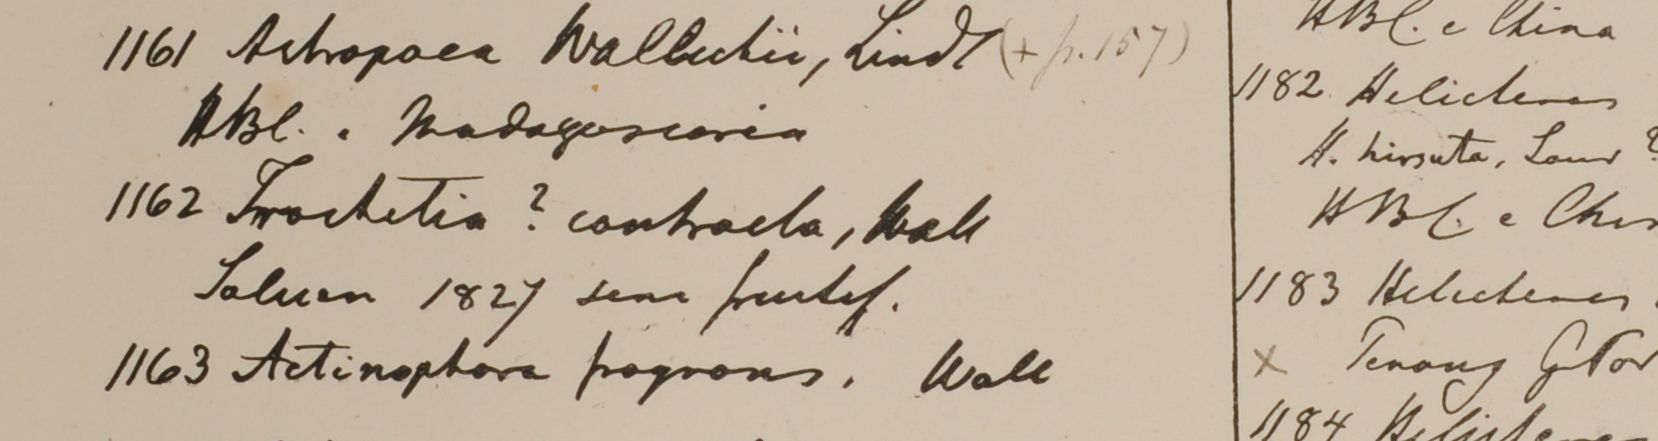 1161 Astropaea Wallichii, Lindl (+ p. 157)
HBC. e Madagascaria
1162 Trochetia ? contracta, Wall
Saluen 1827 sem fructif.
1163 Actinophora fragrans. Wall
HBC. e China
1182 Helicteres
H. hirsuta, Lour ?
HBC. e Chin
1183 Helicteres
x Penang G Por
1184 Helicteres